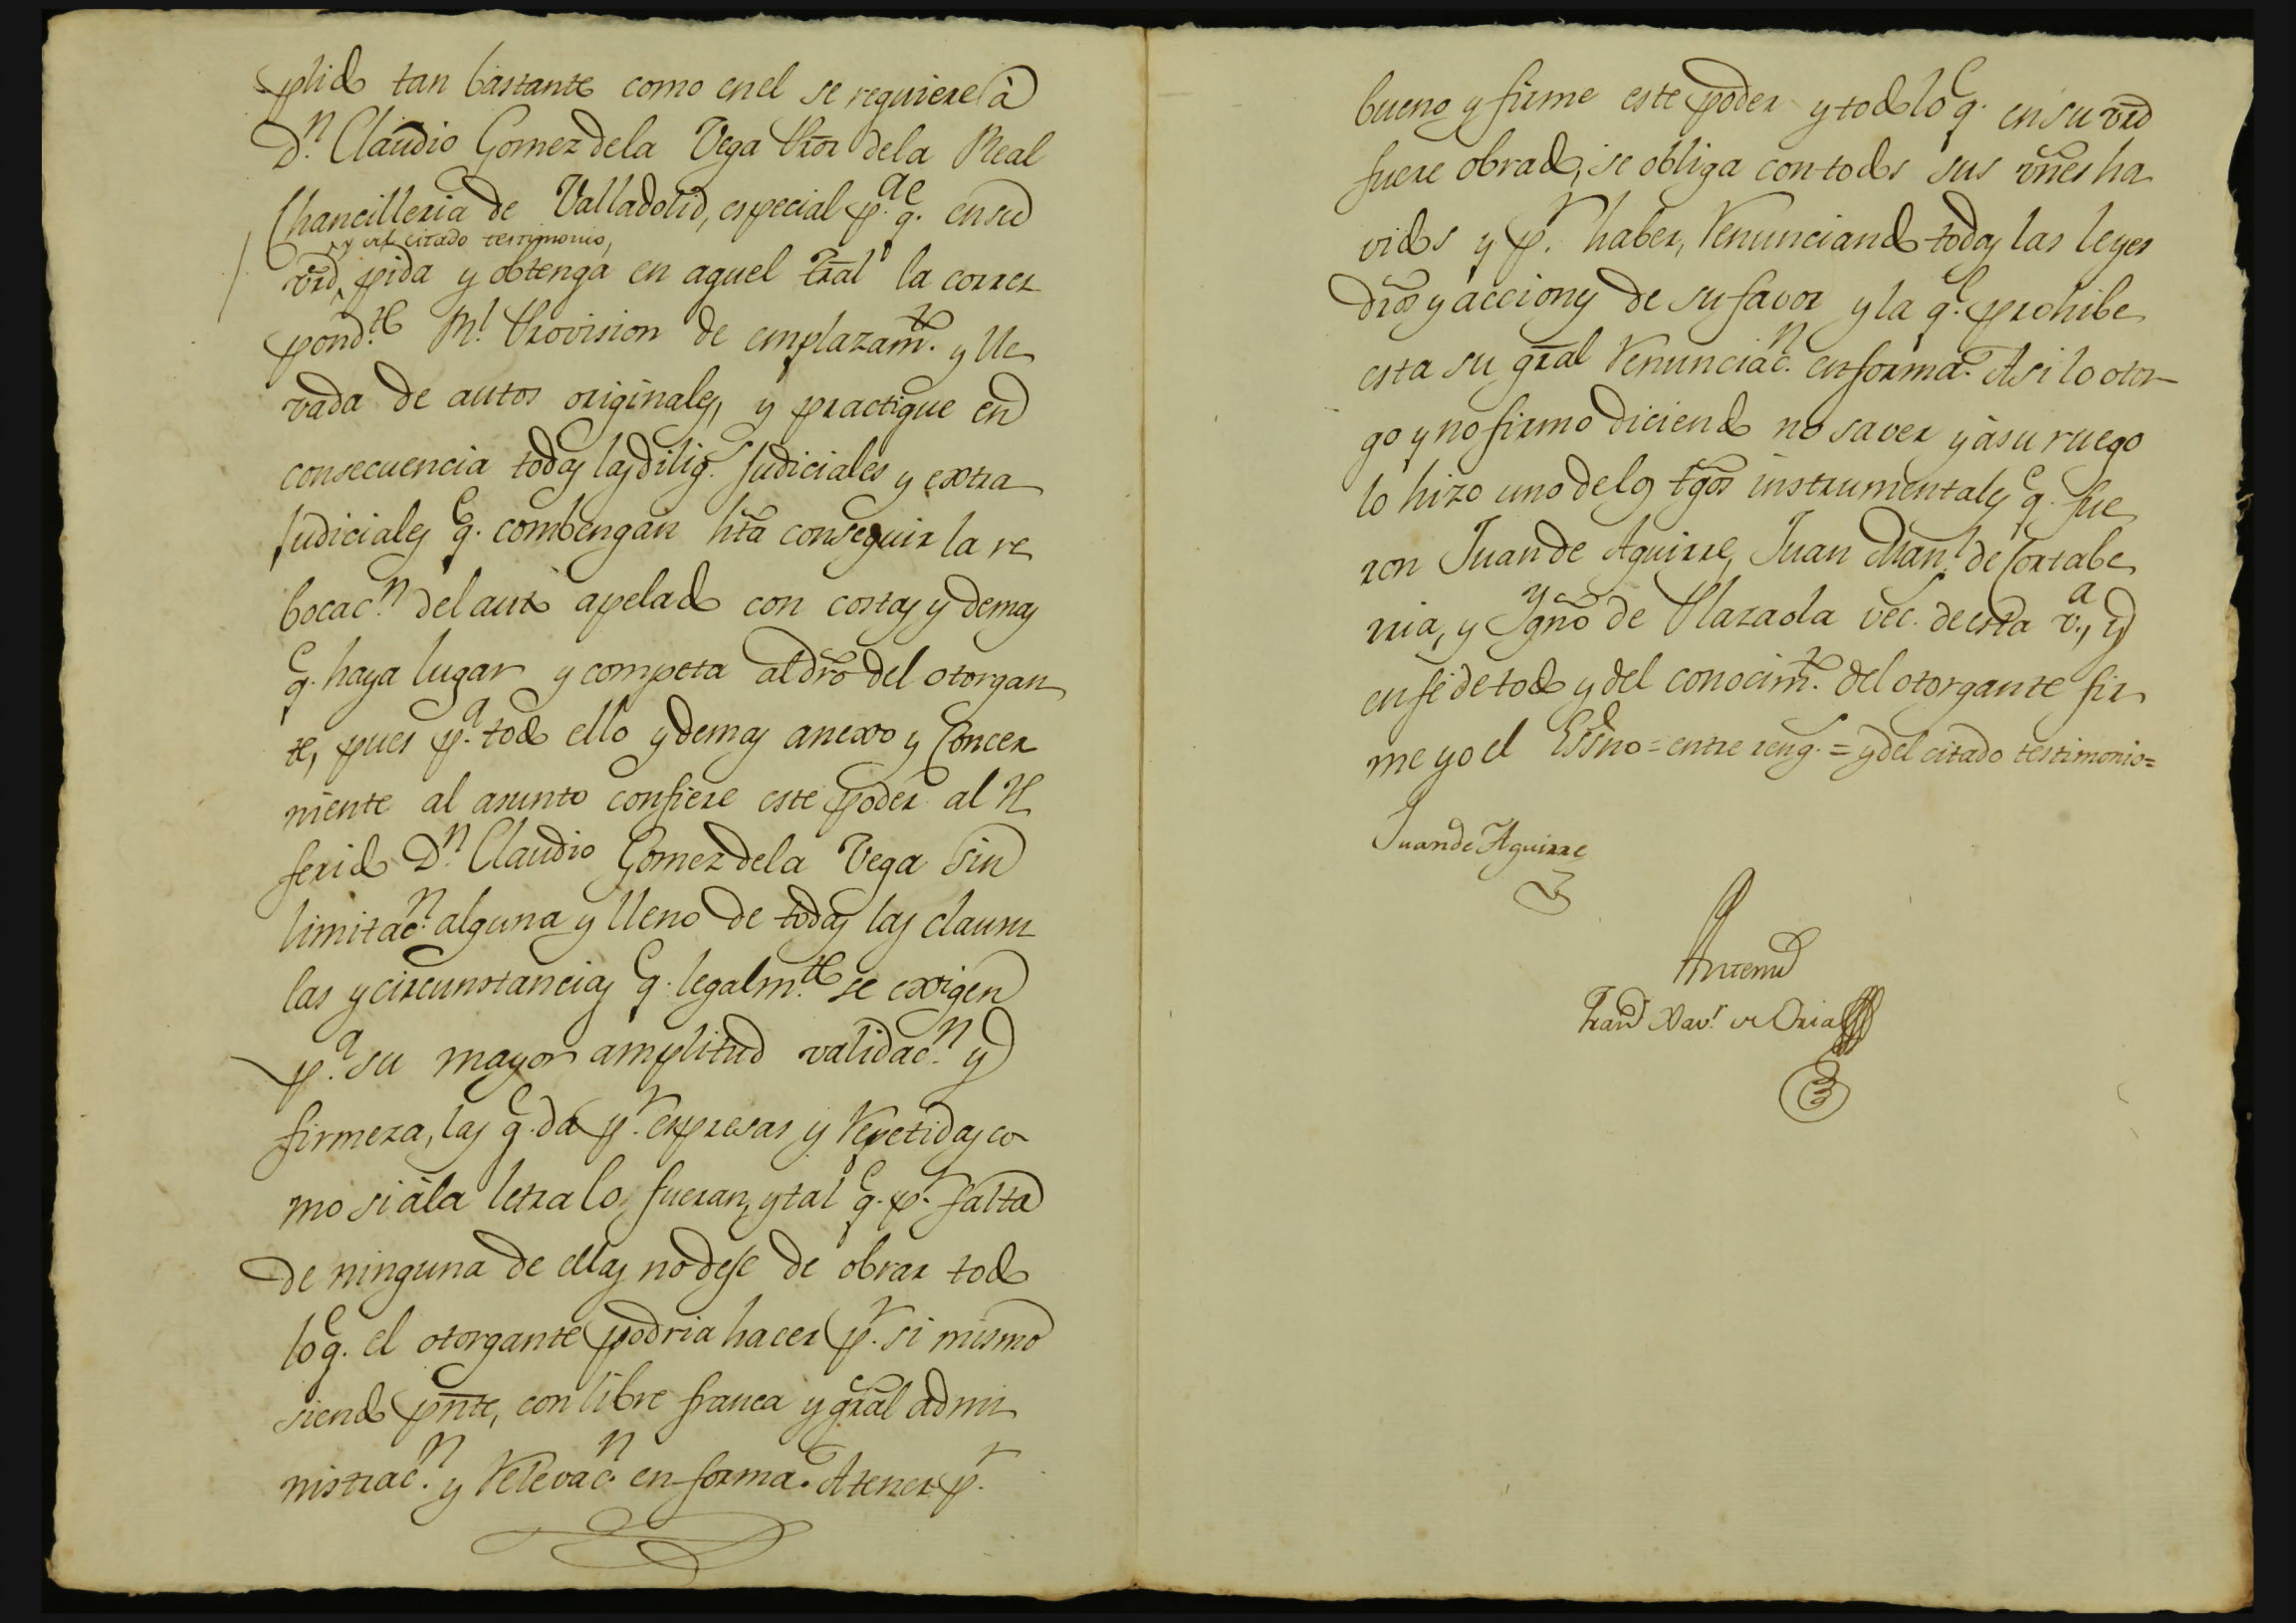 plido tan bastante como en el se requiere à
Dⁿ. Claudio Gomez dela Vega Pror dela Real
Chancilleria de Valladolid, especial pª. qᵉ. en su
y del citado testimonio,
vrd, pida y obtenga en aquel Tral la correz
pondᵗᵉ. Rˡ. Provision de emplazamᵗᵒ. y lle
vada de autos originales, y practique en
consecuencia todas las diligˢ. Judiciales y extra
Judiciales qᵉ. combengan hta conseguir la re
bocacⁿ. del auto apelado con costas y demas
qᵉ. haya lugar y competa al dro del otorgan
te, pues pª. todo ello y demas anexo y concer
niente al asunto confiere este poder al re
ferido Dⁿ. Claudio Gomez dela Vega sin
limitacⁿ. alguna y lleno de todas las clausu
las y circunstancias qᵉ. legalmᵗᵉ. se exigen
pª. su mayor amplitud validacⁿ. y
firmeza, las qᵉ. da pʳ. expresas y repetidas co
mo si àla letra lo fueran, y tal qᵉ. pʳ. falta
de ninguna de ellas no deje de obrar todo
lo qᵉ. el otorgante podria hacer pʳ. si mismo
siendo pnte, con libre franca y gral admi
nistracⁿ. y relevacⁿ. en forma. A tener pʳ.
bueno y firme este poder y todo lo qᵉ. en su vrd
fuere obrado, se obliga con todos sus vnes ha
vidos y pʳ. haber, renunciando todas las leyes
dros y acciones de su favor y la qᵉ. prohibe
esta su gral renunciacⁿ. en forma. Asi lo otor
go y no firmo diciendo no saver y à su ruego
lo hizo uno delos tgos instrumentales qᵉ. fue
ron Juan de Aguirre, Juan Manˡ. de Cortabe
rria, y Ygnº de Plazaola vecˢ. de esta vª., y
en fe de todo y del conocimᵗᵒ. del otorgante fir
me yo el Essno = entre rengˢ. = y del citado testimonio =
Juan de Aguirre
Antemi
Franᶜᵒ Xavʳ. de Oria